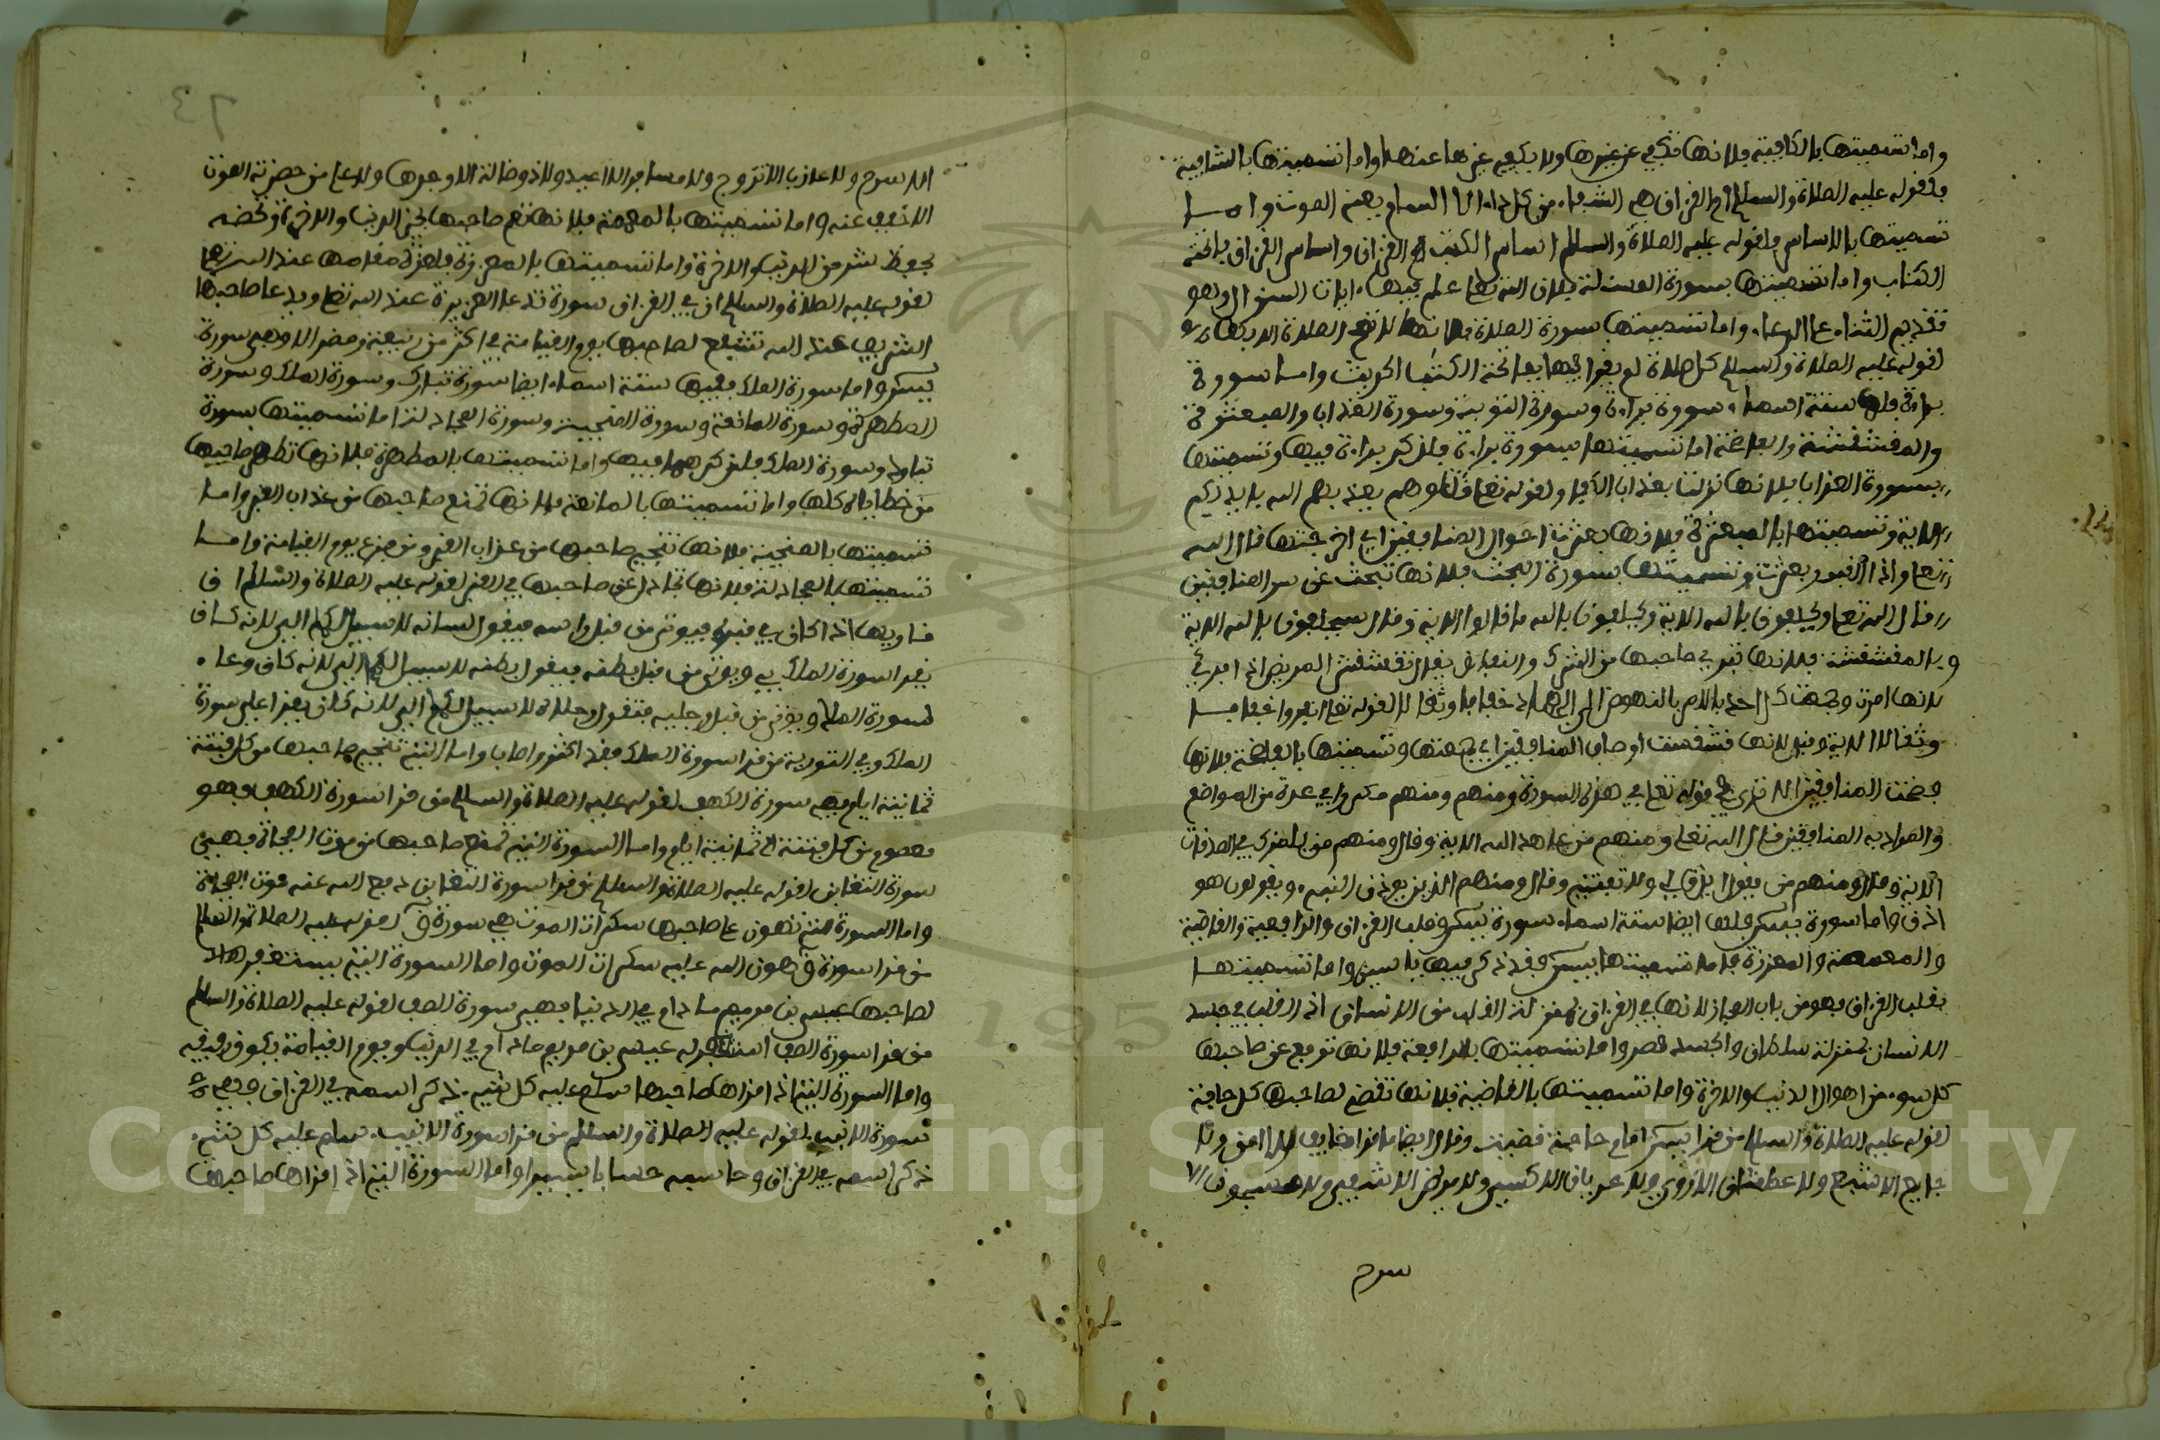 واما تسميتها بالكافية فلانها تكفي عن غيرها ولا يكفي غيرها عنها واما تسميتها بالشافية
فلقوله عليه الصلاة والسلام ام القران هي الشفاء من كل داء الا السام يعني الموت واما
تسميتها بالاساس فلقوله عليه الصلاة والسلام اساس الكتب القران واساس القران فاتحة
الكتاب واما تسميتها بسورة المسئلة فلان الله تعلى علم فيها اداب السؤال وهو
تقديم الثناء على الدعاء واما تسميتها سورة الصلاة فلانها لا تصح الصلاة الا بها
لقوله عليه الصلاة والسلام كل صلاة لم يقرا فيها بفاتحة الكتاب الحديث واما سورة
براءة فلها ستة اسماء سورة براءة وسورة التوبة وسورة العذاب والمبعثرة
والمقشقشة والفاضحة اما تسميتها بسورة براءة فلذكر براءة فيها وتسميتها
بسورة العذاب فلانها نزلت بعذاب الكفار ولقوله تعلى قاتلوهم يعذبهم الله بايديكم
الاية وتسميتها بالمبعثرة فلانها بعثرت احوال المنافقين اي اخرجتها قال الله
تعلى واذا القبور بعثرت وتسميتها بسورة البحث فلانها تبحث عن سر المنافقين
قال الله تعلى ويحلفون بالله الاية ويحلفون بالله ما قالوا الاية وقال سيحلفون بالله الاية
وبالمقشقشة فلانها تبري صاحبها من الشرك والنفاق يقال تقشقش المريض اذا ابري
لانها امرت وجهت كل احد بالامر بالنهوض الى الجهاد خفافا وثقالا لقوله تعلى انفروا خفافا
وثقالا الاية وقيل لانها قشقشت اوصاف المنافقين اي جمعتها وتسميتها بالفاضحة فلانها
فضحت المنافقين الا ترى الى قوله تعلى في هذه السورة ومنهم ومنهم مكررا في عدة من المواضع
والمراد به المنافقين قال الله تعلى ومنهم من عاهد الله الاية وقال ومنهم من يلمزك في الصدقات
الاية وقال ومنهم من يقول ايذن لي ولا تفتني وقال ومنهم الذين يوذون النبيء ويقولون هو
اذن واما سورة يس فلها ايضا ستة اسماء سورة يس وقلب القران والرافعة والقاضية
والمعمة والمعززة فاما تسميتها بيس فقد ذكر فيها ياسين واما تسميتها
بقلب القران فهو من باب المجاز لانها في القران بمنزلة القلب من الانسان اذ القلب في جسد
الانسان بمنزلة سلطان والجسد قصر واما تسميتها بالرافعة فلانها ترفع عن صاحبها
كل سوء من اهوال الدنيا والاخرة واما تسميتها بالقاضية فلانها تقضي لصاحبها كل حاجة
لقوله عليه الصلاة والسلام من قرا يس امام حاجة قضيت وقال ايضا ما قراها خايف الا امن ولا
جايع الا شبع ولا عطشان الا روي ولا عريان الا كسي ولا مريض الا شفي ولا مسجون الا
سرح
الا سرح ولا عازب الا تزوج ولا مسافر الا اعيد ولا ذو ضالة الا وجدها ولا على من حضرته الموت
الا خفف عنه واما تسميتها بالمعمة فلانها تعم صاحبها بخير الدنيا والاخرة وتحصنه
من الدنيا والاخرة واما تسميتها بالمعززة فلعزة مقامها عند الله تعلى
لقوله عليه الصلاة والسلام ان في القران سورة تدعا العزيزة عند الله تعلى ويدعا صاحبها
الشريف عند الله تشفع لصاحبها يوم القيامة في اكثر من ربيعة ومضر الا وهي سورة
يس واما سورة الملك ففيها ستة اسماء ايضا سورة تبارك وسورة الملك وسورة
المطهرة وسورة المانعة وسورة المنجية وسورة المجادلة اما تسميتها بسورة
تبارك وسورة الملك فلذكرهما فيها واما تسميتها بالمطهرة فلانها تطهر صاحبها
من خطاياه كلها واما تسميتها بالمانعة فلانها تمنع صاحبها من عذاب القبر واما
تسميتها بالمنجية فلانها تنجي صاحبها من عذاب القبر ومن فزع يوم القيامة واما
تسميتها بالمجادلة فلانها تجادل عن صاحبها في القبر لقوله عليه الصلاة والسلام ان
قاريها اذا كان في قبره فيوتى من قبل راسه فيقول لسانه لا سبيل لكم الي لانه كان
يقرا سورة الملك بي ويوتى من قبل بطنه فيقول بطنه لا سبيل لكم الي لانه كان وعاء
لسورة الملك ويوتى من قبل رجليه فتقول رجلاه لا سبيل لكم الي لانه كان يقرا علي سورة
الملك وفي التورية من قرا سورة الملك فقد اكثر واطاب واما التي تنجي صاحبها من كل فتنة
ثمانية ايام فهي سورة الكهف لقوله عليه الصلاة والسلام من قرا سورة الكهف فهو
معصوم من كل فتنة الى ثمانية ايام واما السورة التي تمنع صاحبها من موت الفجاة فهي
سورة التغابن لقوله عليه الصلاة والسلام من قرا سورة التغابن دفع الله عنه موت الفجاة
واما السورة التي تهون على صاحبها سكرات الموت فهي سورة ق لقوله عليه الصلاة والسلام
من قرا سورة ق هون الله عليه سكرات الموت واما السورة التي يستغفر
لصاحبها عيسى بن مريم ما دام في الدنيا فهي سورة الصف لقوله عليه الصلاة والسلام
من قرا سورة الصف استغفر له عيسى بن مريم ما دام في الدنيا ويوم القيامة يكون رفيقه
واما السورة التي اذا قراها صاحبها سلم عليه كل نبيء ذكر اسمه في القران فهي
سورة الانبياء لقوله عليه الصلاة والسلام من قرا سورة الانبياء سلم عليه كل نبيء
ذكر اسمه في القران وحاسبه حسابا يسيرا واما السورة التي اذا قراها صاحبها